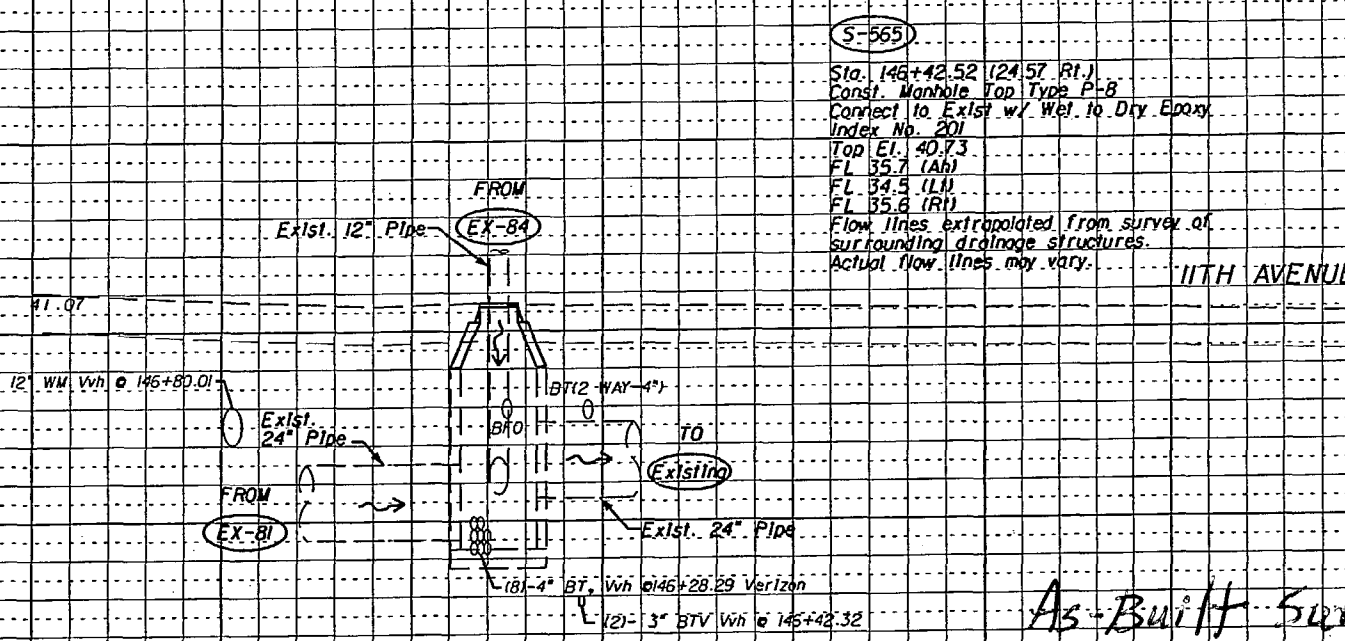 S-565
Sta. 146+42.52 (24.57 Rt.)
Const. Manhole Top Type P-8
Connect to Exist w/ Wet to Dry Epoxy
Index No. 201
Top El. 40.73
FL 35.7 (Ah)
FL 34.5 (Lt)
FL 35.6 (Rt)
Flow lines extrapolated from survey of
surrounding drainage structures.
Actual flow lines may vary.
11TH AVENUE
FROM
EX-84
Exist. 12" Pipe
41.07
12" WM Vvh @ 146+80.01
BT(2-WAY-4")
Exist.
24" Pipe
BFO
TO
Existing
FROM
EX-81
Exist. 24" Pipe
(8)-4" BT, Vvh @146+28.29 Verizon
(2)- 3" BTV Vvh @ 145+42.32
As-Built